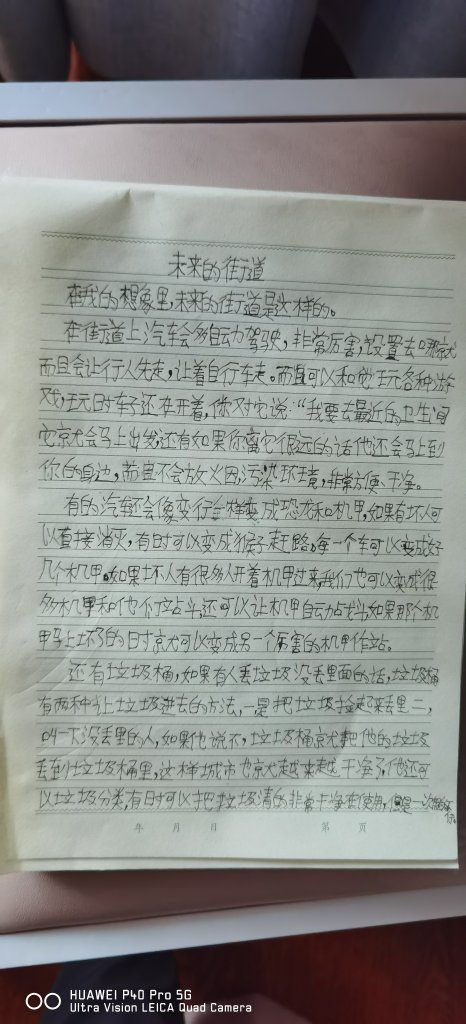 未来的街道
在我的想象里,未来的街道是这样的。
在街道上汽车会自动驾驶,非常厉害,设置去哪就
而且会让行人先走,让着自行车走。而且可以和它玩各种游
戏,玩时车子还在开着,你对它说:“我要去最近的卫生间
它就会马上出发,还有如果你离它很远的话他还会马上到
你的身边,而且不会放火因污染环境,非常方便、干净。
有的汽车还会像变形金刚样变成恐龙和机甲,如果有坏人可
以直接消灭,有时可以变成猴子赶路,每一个车可以变成好
几个机甲。如果坏人有很多人开着机甲过来,我们也可以变成很
多机甲和他们站斗,还可以让机甲自动战斗,如果那个机
甲马上坏了的时就可以变成另一个厉害的机甲作站。
还有垃圾桶,如果有人丢垃圾没丢里面的话,垃圾桶
有两种让垃圾进去的方法,一是把垃圾捡起来丢里二,
叫一下没丢里的人,如果他说不,垃圾桶就把他的垃圾
丢到垃圾桶里,这样城市也就越来越干净了,他还可
以垃圾分类,有时可以把垃圾清的非常干净在使用,但是一次
年 月 日 第 页
HUAWEI P40 Pro 5G
Ultra Vision LEICA Quad Camera